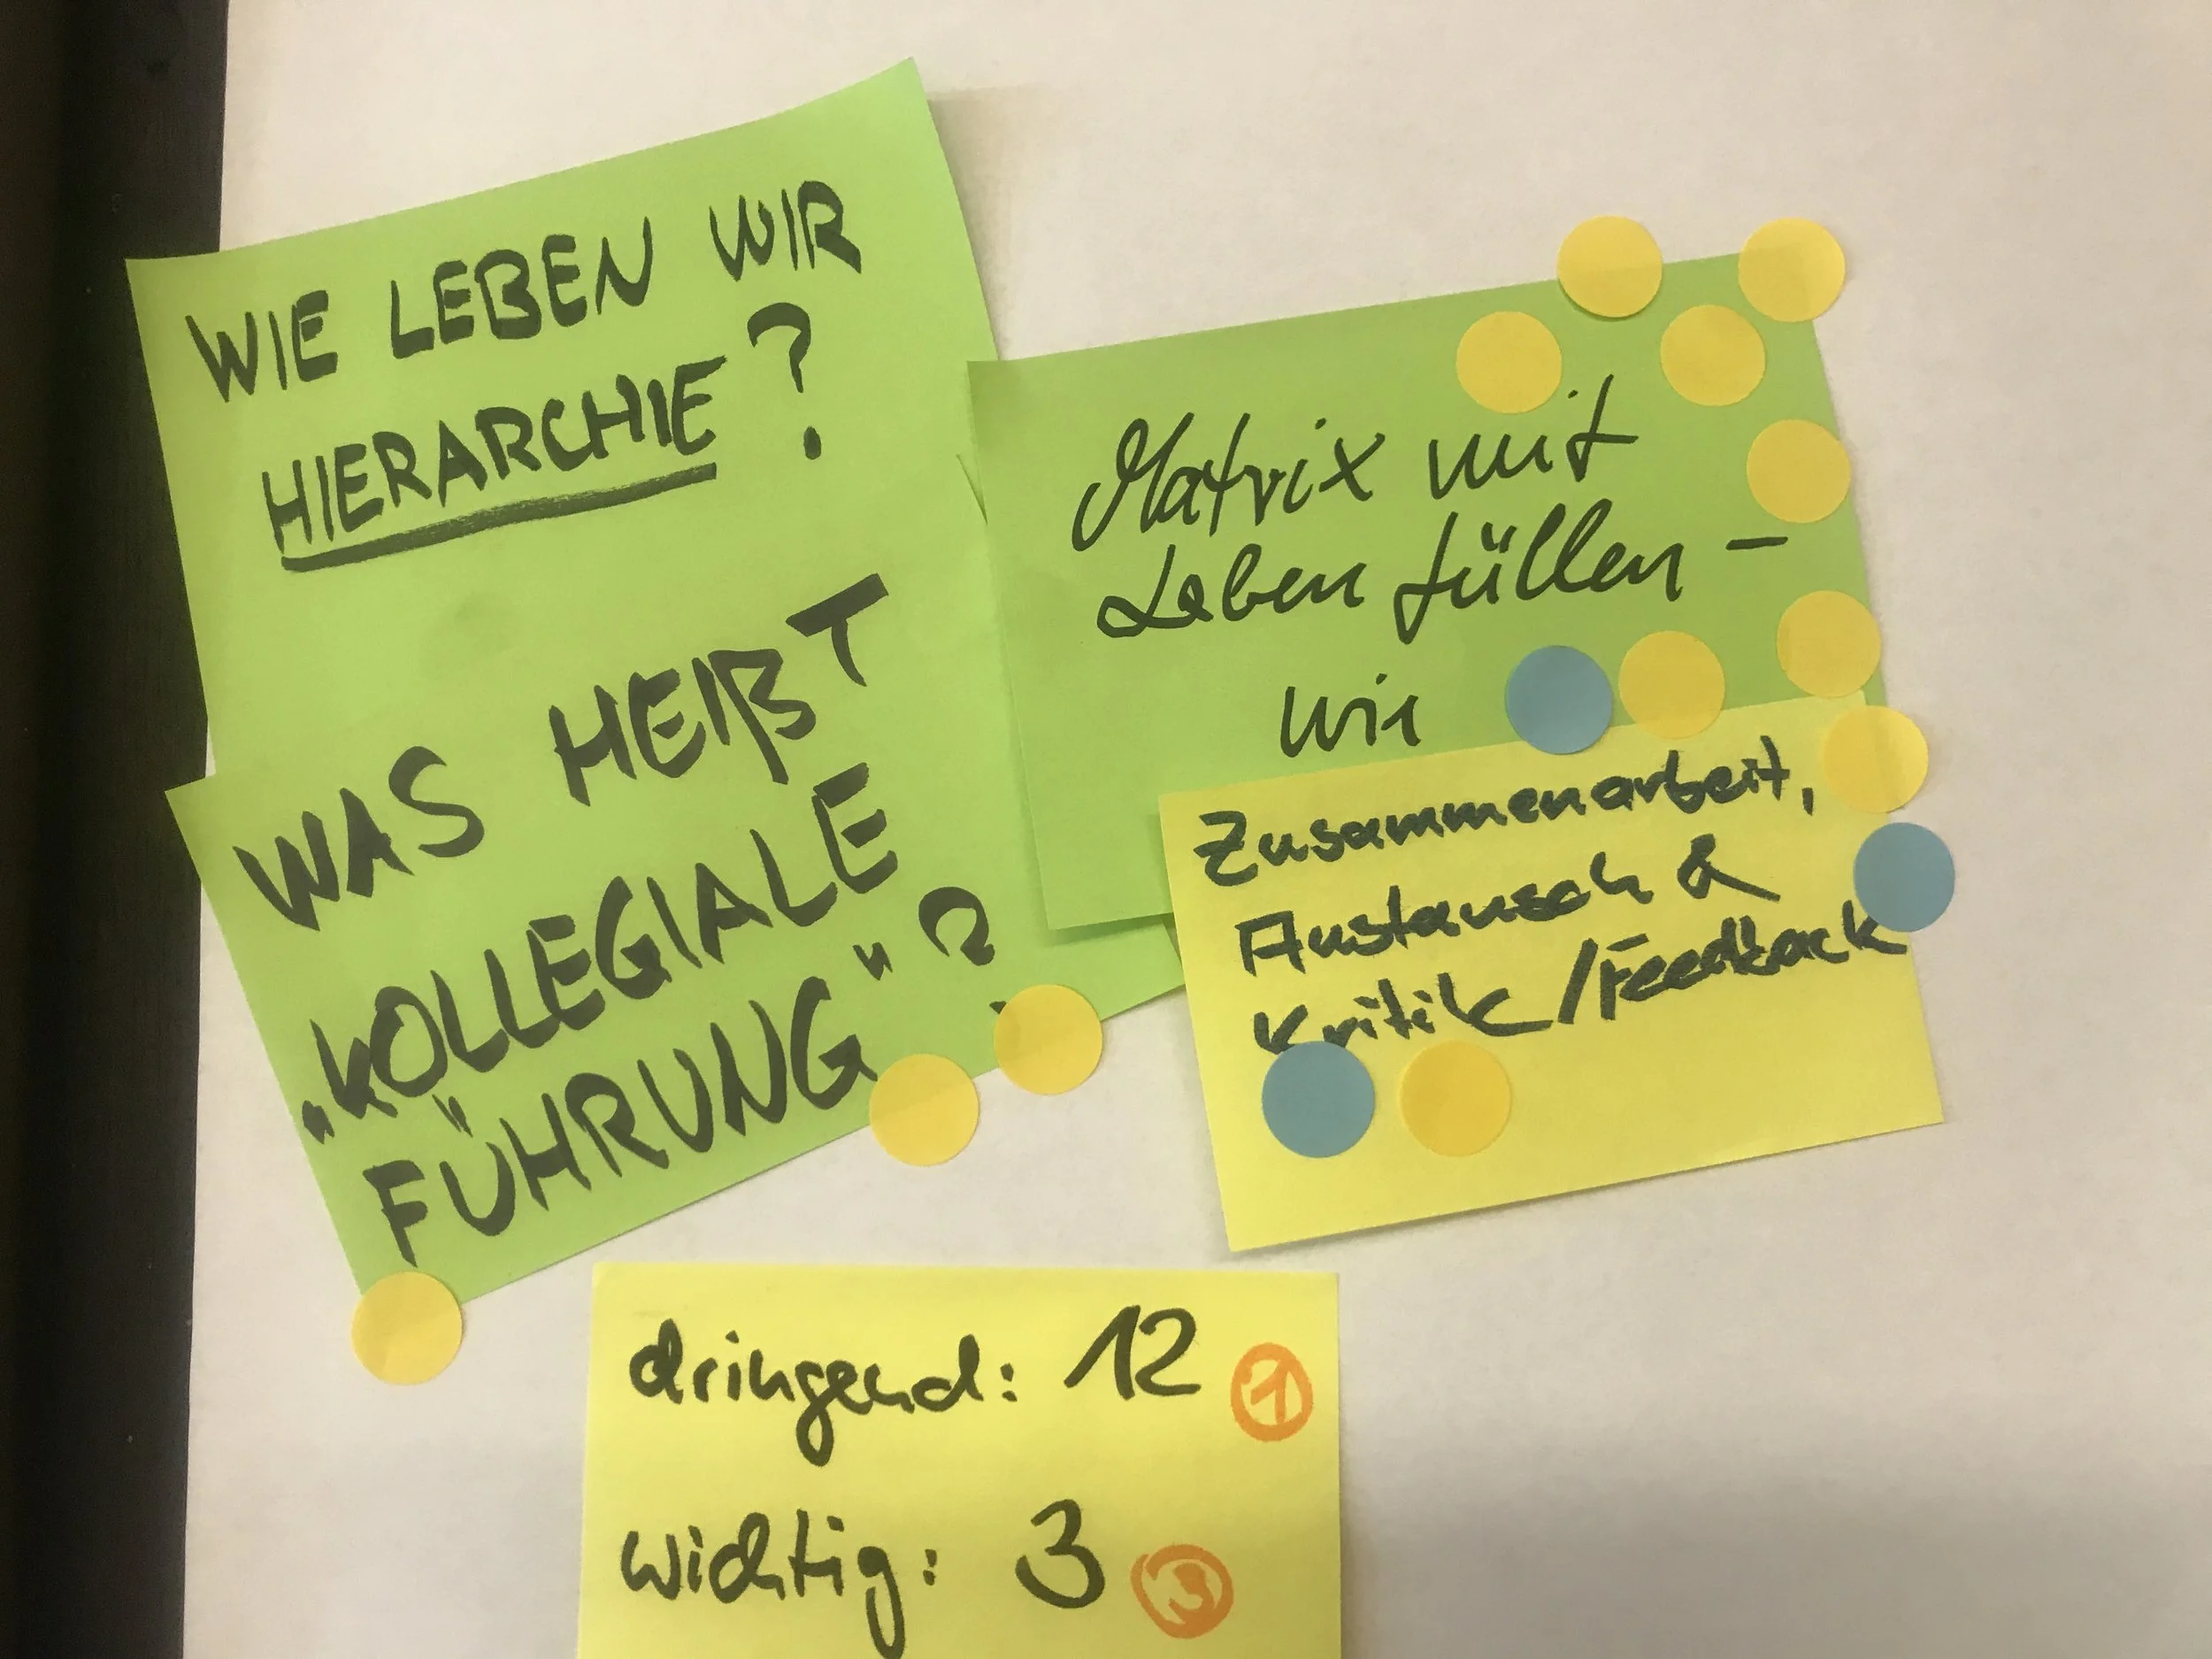 WIE LEBEN WIR
HIERARCHIE?
WAS HEIßT
„KOLLEGIALE
FÜHRUNG"?
Matrix mit
Leben füllen –
wie
Zusammenarbeit,
Austausch &
Kritik/Feedback
dringend: 12 1
wichtig: 3 3